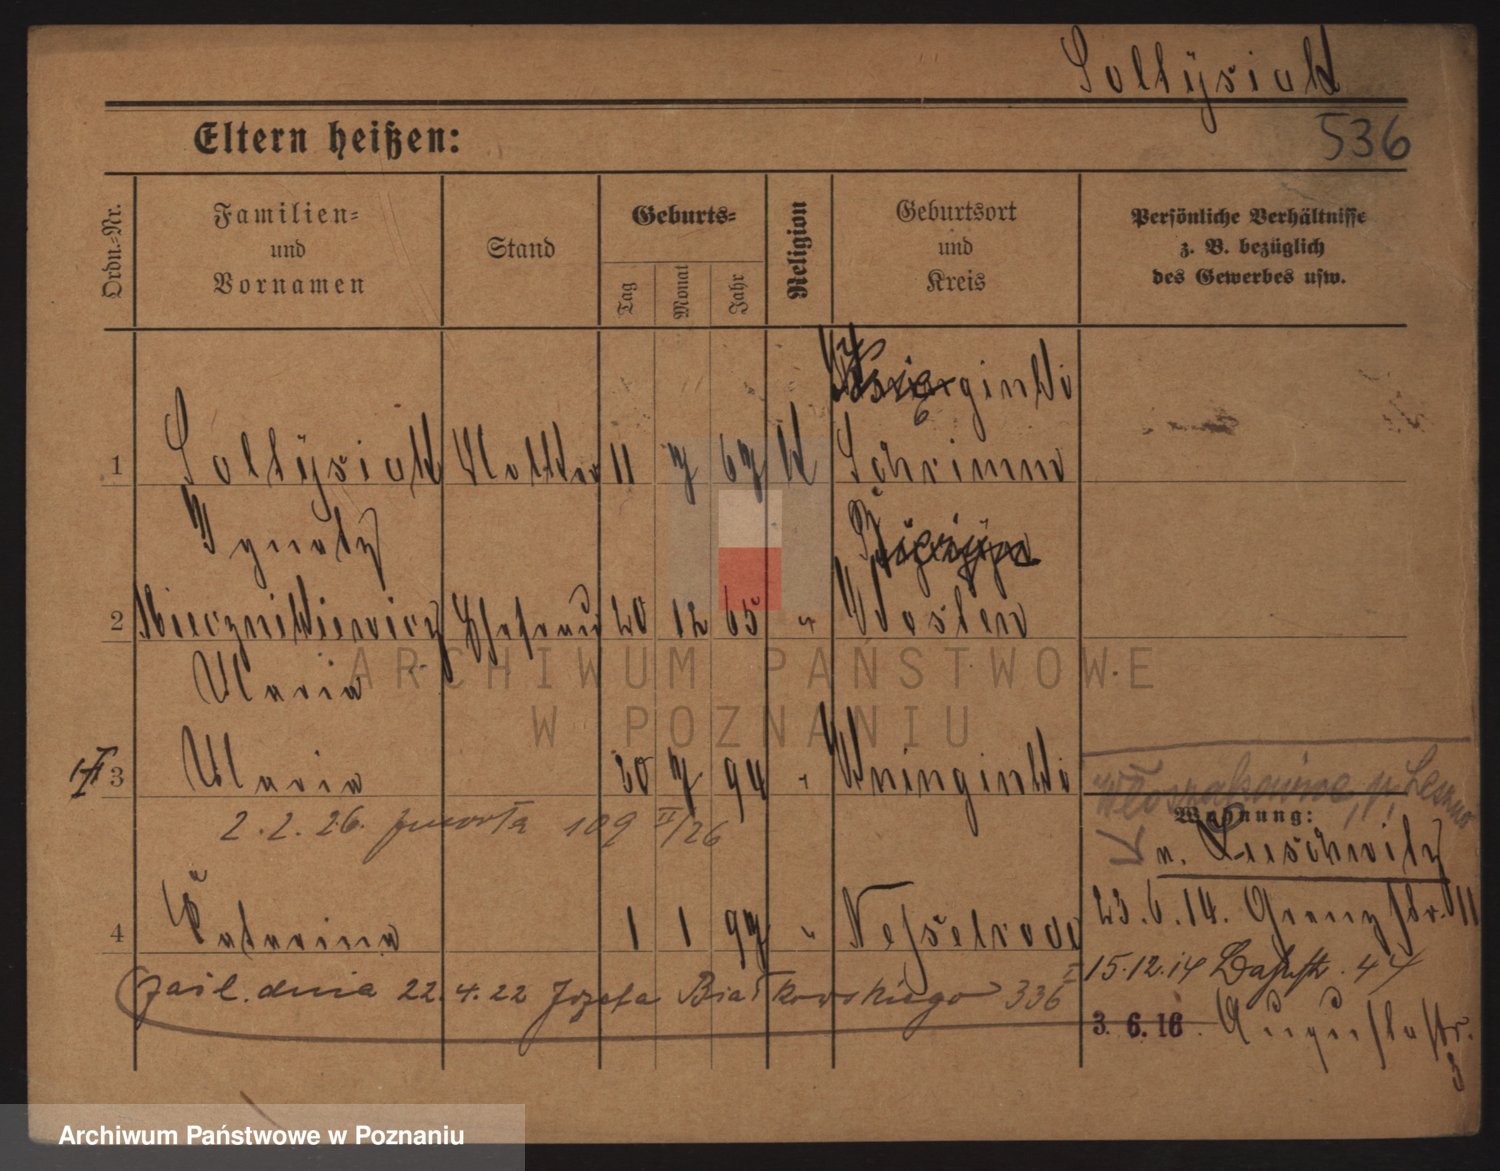 Soltÿsiak
Eltern heißen:
536
Ordn.-Nr.
Familien-
und
Vornamen
Stand
Geburts-
Tag
Monat
Jahr
Religion
Geburtsort
und
Kreis
Persönliche Verhältnisse
z. B. bezüglich
des Gewerbes usw.
ginki
1 Soltÿsiak 11 7 67 K Schrimm
Ignatz
2 Miecznikiewicz Ehefrau 20 12 65 " Kosten
Maria
ARCHIWUM PAŃSTWOWE
W POZNANIU
3 Maria 20 7 94 "
2.2.26. 109 II/26
Leszno
Wohnung:
n. Luschwitz
4 Katarina 1 1 97 "
23.6.14. Grenzstr. 11
15.12.14 44
zaśl. dnia 22.4.22 Józefa Białkowskiego 336 I
3.6.16. Augustastr.
3
Archiwum Państwowe w Poznaniu